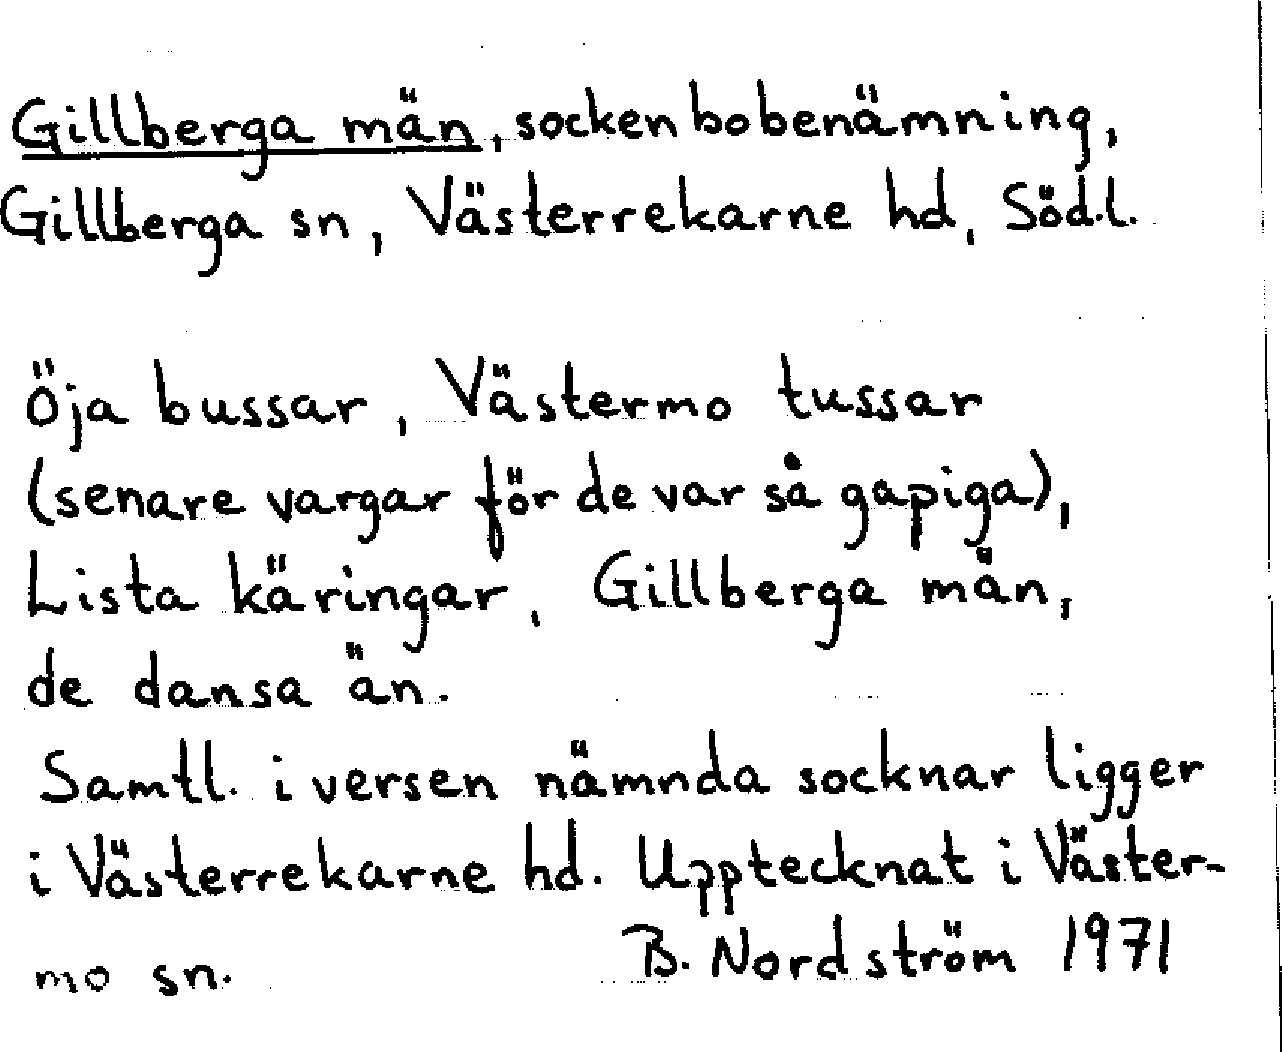 Gillberga män, sockenbobenämning,
Gillberga sn, Västerrekarne hd, Söd.l.
Öja bussar, Västermo tussar
(senare vargar för de var så gapiga),
Lista käringar, Gillberga män,
de dansa än.
Samtl. i versen nämnda socknar ligger
i Västerrekarne hd. Upptecknat i Väster-
mo sn. B. Nordström 1971